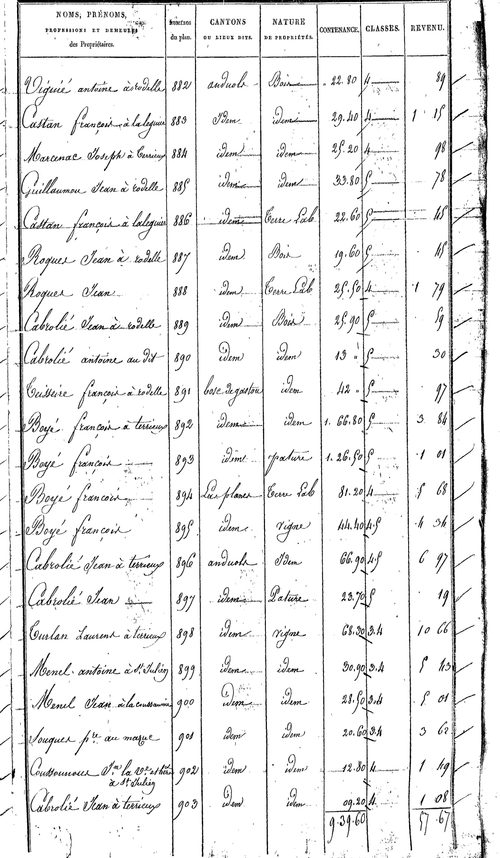 NOMS, PRÉNOMS, PROFESSIONS ET DEMEURES des Propriétaires. | NUMÉROS du plan. | CANTONS OU LIEUX DITS. | NATURE DE PROPRIÉTÉS. | CONTENANCE. | CLASSES. | REVENU.
Vigié antoine à rodelle 882 anduols Bois 22.80 4 89
Castan françois à laleguier 883 Idem idem 29.40 4 1 15
Marcenac Joseph à terrieux 884 idem idem 25.20 4 98
Guillaumou Jean à rodelle 885 idem idem 33.80 5 78
Castan françois à laleguier 886 idem Terre Lab 22.60 5 45
Roques Jean à rodelle 887 idem Bois 19.60 5 45
Roques Jean 888 idem Terre Lab 25.50 4 1 79
Cabrolié Jean à rodelle 889 idem Bois 25.90 5 59
Cabrolié antoine au dit 890 idem idem 13 " 5 30
Teisseire françois à rodelle 891 bosc de gastou idem 42 " 5 97
Boyé françois à terrieux 892 idem idem 1.66.80 5 3 84
Boyé françois 893 idem pature 1.26.50 5 1 01
Boyé françois 894 Las planes Terre Lab 81.20 4 5 68
Boyé françois 895 idem vigne 44.40 4.5 4 34
Cabrolié Jean à terrieux 896 anduols Idem 66.90 4.5 6 97
Cabrolié Jean 897 idem Pature 23.70 5 19
Turlan Laurent à terrieux 898 idem vigne 68.30 3.4 10 66
Menel antoine à St Julien 899 idem idem 30.90 3.4 5 43
Menel Jean à la coussanne 900 idem idem 28.50 3.4 5 01
Souques pre au maque 901 idem idem 20.60 3.4 3 62
Coussounoux la Ve et hers 902 idem idem 12.80 4 1 49
à St Julien
Cabrolié Jean à terrieux 903 idem idem 09.20 4 1 08
9.39.60 57.67